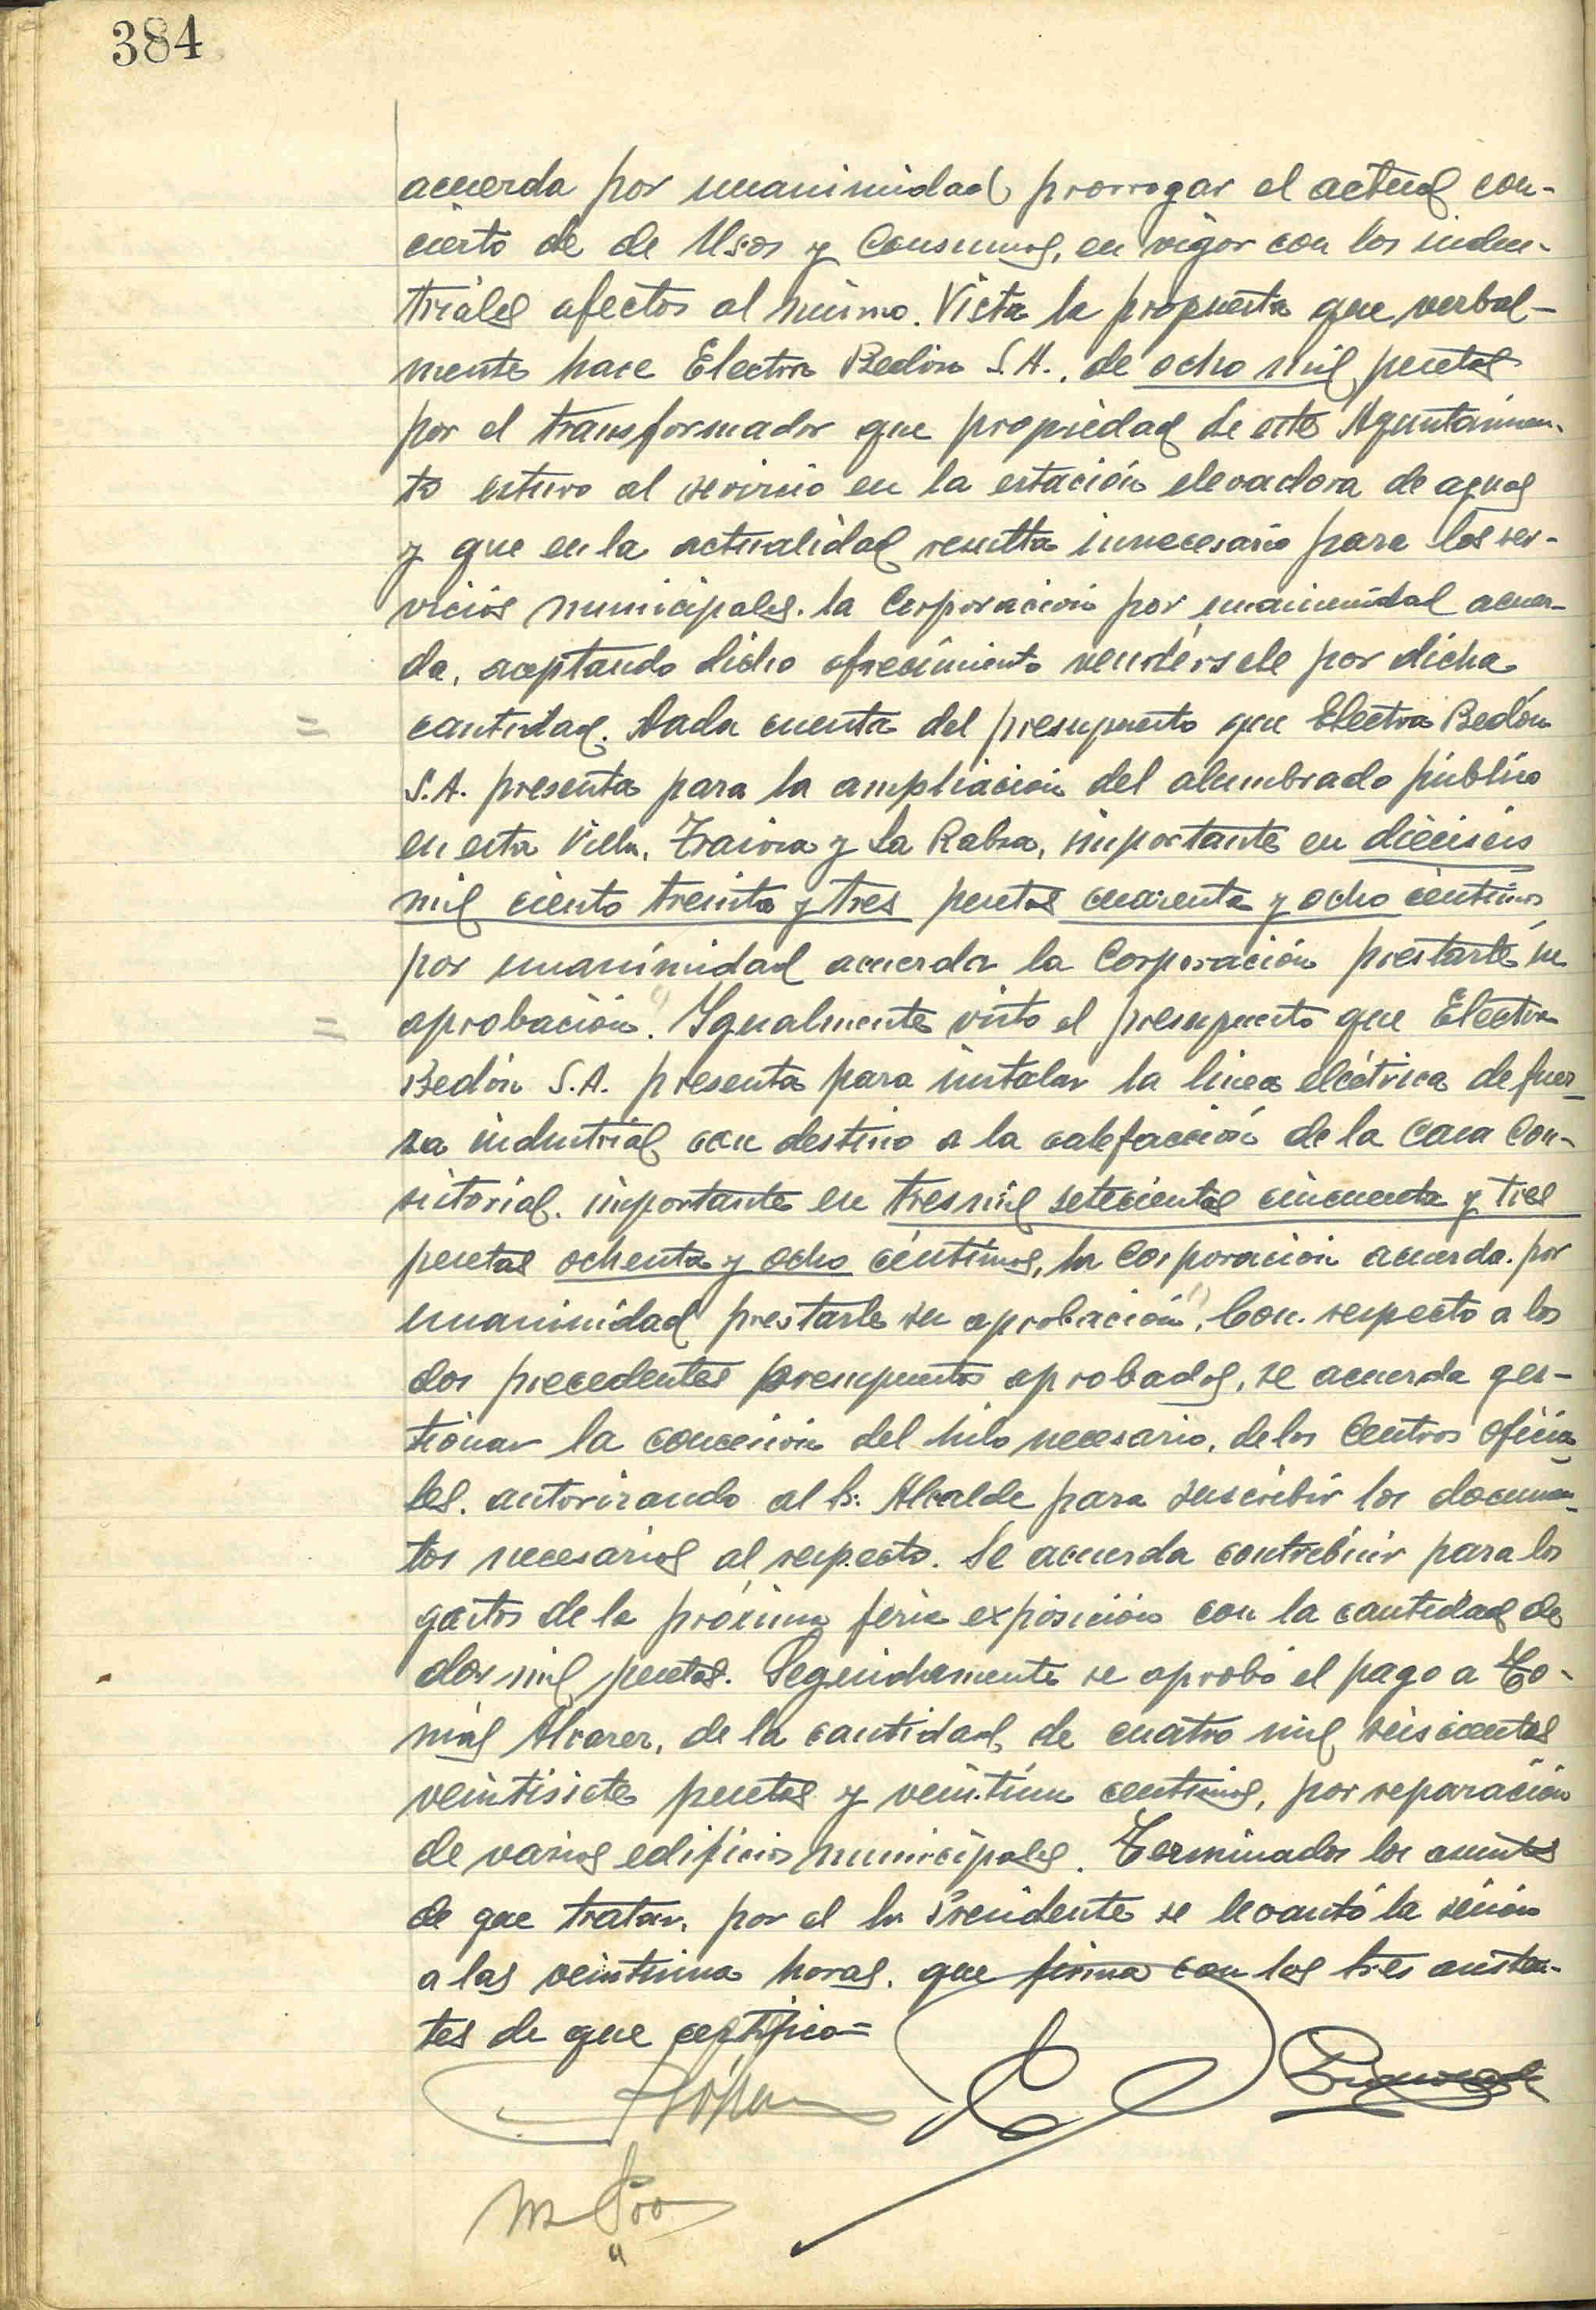 384
acuerda por unanimidad, prorrogar el actual con-
cierto de de Usos y Consumos, en vigor con los indus-
triales afectos al mismo. Vista la propuesta que verbal-
mente hace Electra Bedón S.A., de ocho mil pesetas
por el transformador que propiedad de este Ayuntamien-
to estuvo al servicio en la estación elevadora de aguas
y que en la actualidad resulta innecesario para los ser-
vicios municipales. la Corporación por unanimidad acuer-
da, aceptando dicho ofrecimiento vendérsele por dicha
= cantidad. Dada cuenta del presupuesto que Electra Bedón
S.A. presenta para la ampliación del alumbrado público
en esta Villa, y La Rabia, importante en dieciséis
mil ciento treinta y tres pesetas cuarenta y ocho céntimos
por unanimidad acuerda la Corporación prestarle su
= aprobación. Igualmente visto el presupuesto que Electra
Bedón S.A. presenta para instalar la linea eléctrica de fuer-
za industrial con destino a la calefacción de la Casa Con-
sistorial, importante en tres mil setecientas cincuenta y tres
pesetas ochenta y ocho céntimos, la Corporación acuerda por
unanimidad prestarle su aprobación. Con respecto a los
dos precedentes presupuestos aprobados, se acuerda ges-
tionar la concesión del hilo necesario, de los Centros oficia-
les, autorizando al Sr. Alcalde para suscribir los documen-
tos necesarios al respecto. Se acuerda contribuir para los
gastos de la próxima feria exposición con la cantidad de
dos mil pesetas. Seguidamente se aprobó el pago a To-
más Alvarez, de la cantidad de cuatro mil seiscientas
veintisiete pesetas y veintiún centimos, por reparación
de varios edificios municipales. Terminados los asuntos
de que tratar, por el Sr Presidente se levantó la sesión
a las veintiuna horas, que firma con los tres asisten-
tes de que certifico=
López
M Poo